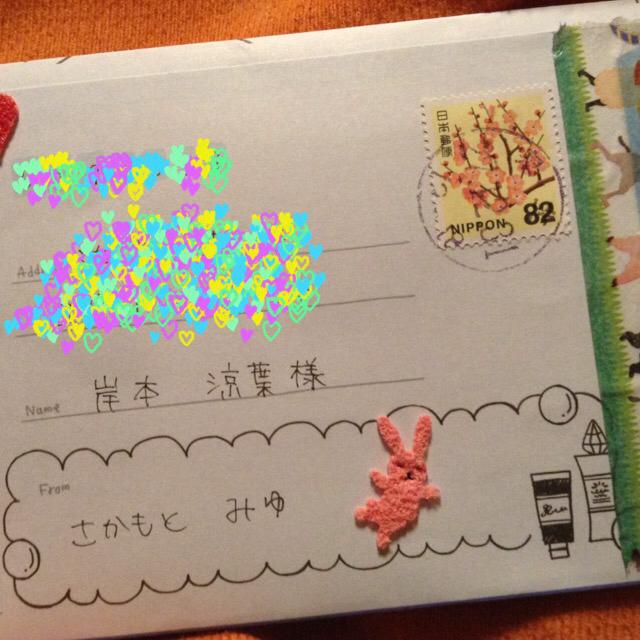 日本郵便
82
NIPPON
Name 岸本 涼葉 様
From
さかもと みゆ